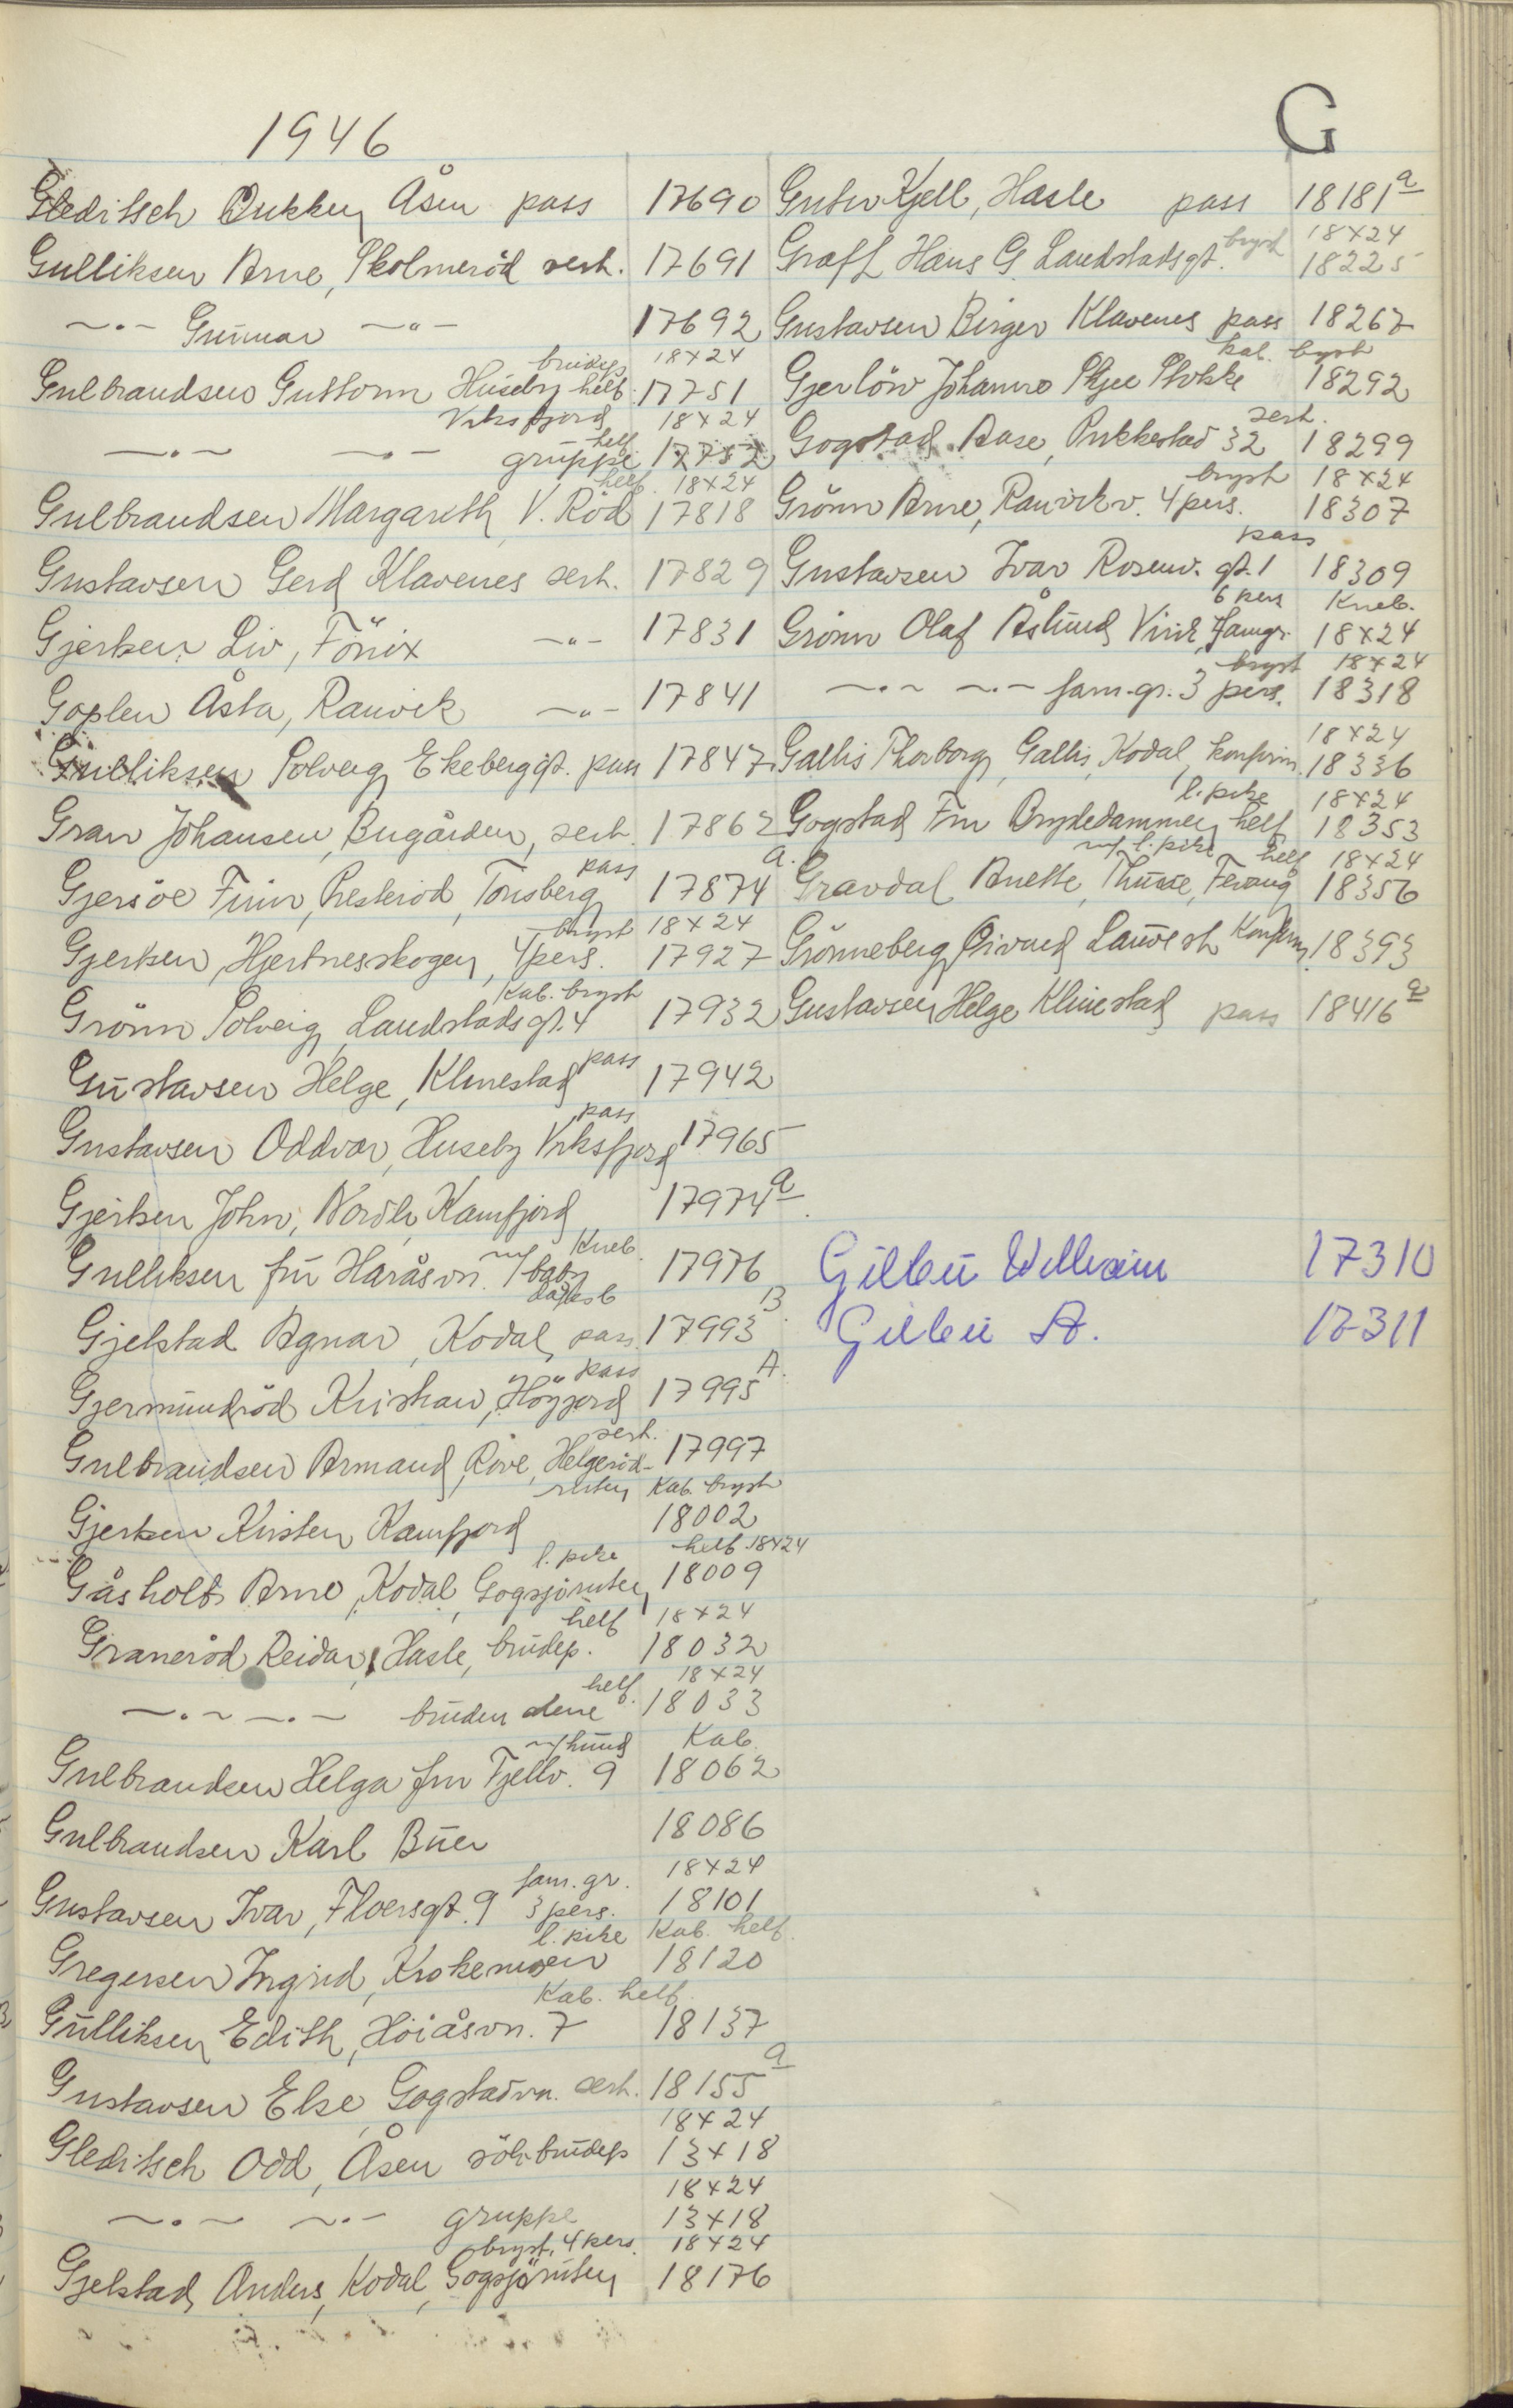 1946
G
Gleditsch Dukken Åsen pass 17690
Gulliksen Arne, Skolmeröd serh. 17691
—"— Gunnar —"— 17692
brudep. 18x24
Gulbrandsen Guttorm Huseby helf. 17751
Viksfjord 18x24
—"— —"— helf gruppe 17752
helf. 18x24
Gulbrandsen Margareth, V. Röd 17818
Gustavsen Gerd Klavenes serh. 17829
Gjertsen Liv, Fönix —"— 17831
Goplen Åsta, Ranvik —"— 17841
Gulliksen Solveig Ekeberggt. pass 17847
Gran Johansen, Bugården, serh. 17862
pass a.
Gjersöe Finn, Presteröd, Tönsberg 17874
bryst 18x24
Gjertsen, Hjertnesskogen, 4 pers. 17927
Kab. bryst
Grönn Solveig, Landstadsgt. 4 17932
pass
Gustavsen Helge, Klinestad 17942
pass
Gustavsen Oddvar, Huseby Viksfjord 17965
Gjertsen John, Nordli, Kamfjord 17974 a
m/ Kneb.
Gulliksen fru Haråsvn. 1 barn 17976
dåpsb B.
Gjelstad Agnar, Kodal, pass. 17993
pass A.
Gjermundröd Kristian, Höyjord 17995
serh.
Gulbrandsen Armand, Röve, Helgeröd- 17997
ruten Kab. bryst
Gjertsen Kirsten, Kamfjord 18002
l. pike helf. 18x24
Gåsholt Arne, Kodal, Gogsjöruten 18009
helf 18x24
Graneröd Reidar, Hasle, brudep. 18032
helf. 18x24
—"— —"— bruden alene 18033
m/hund Kab.
Gulbrandsen Helga fru Fjellv. 9 18062
Gulbrandsen Karl Buer 18086
fam. gr. 18x24
Gustavsen Ivar, Floersgt. 9 3 pers. 18101
l. pike Kab. helf.
Gregersen Ingrid, Krokemoen 18120
Kab. helf.
Gulliksen Edith, Höiåsvn. 7 18137
a
Gustavsen Else, Gogstadvn. serh. 18155
18x24
Gleditsch Odd, Åsen sölvbrudep 13x18
18x24
—"— —"— gruppe 13x18
bryst. 4 pers. 18x24
Gjelstad, Anders, Kodal, Gogsjöruten 18176
Kjell, Hasle pass 18181 a
bryst 18x24
Graff Hans G. Landstadsgt. 18225
Gustavsen Birger Klavenes pass 18267
kab. bryst
Gjerlöw Johanne Skjee Stokke 18292
serh.
Gogstad Aase, Pukkestad 32 18299
bryst 18x24
Grönn Arne, Ranvikv. 4 pers. 18307
pass
Gustavsen Ivar Rosenv. gt. 1 18309
6 pers Kneb.
Grönn Olaf Åslund, Vinik, famgr. 18x24
bryst 18x24
—"— —"— fam. gr. 3 pers. 18318
18x24
Gallis Thorborg, Gallis, Kodal, konfirm. 18336
l. pike 18x24
Gogstad Fru Brydedammen helf 18353
m/ l. pike helf 18x24
Gravdal Anette, Fevang 18356
Grönneberg Öivind Lauvesh Konfirm. 18393
Gustavsen Helge Klinestad pass 18416 a
Gilbu William 17310
Gilbu A. 17311